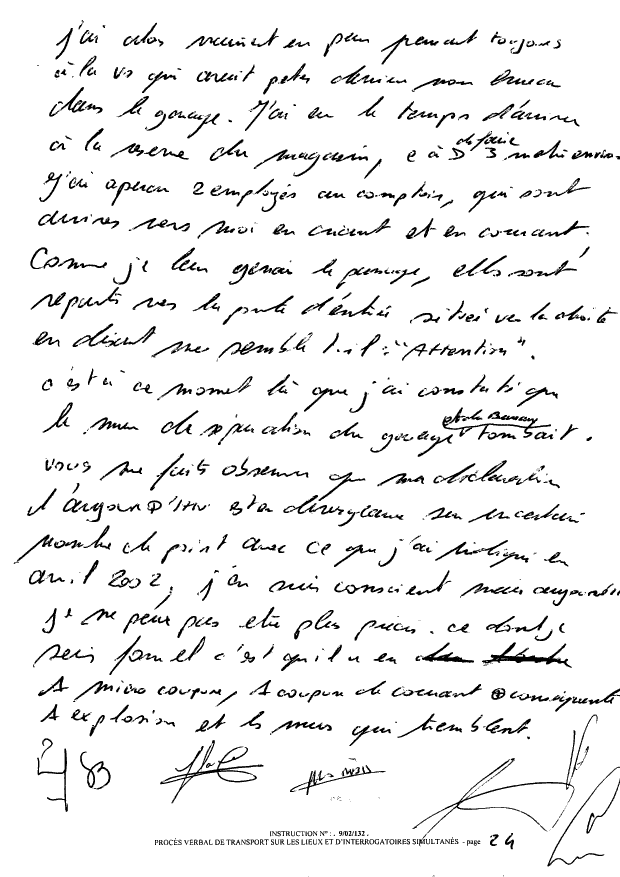 j'ai alors vraiment eu peur pensant toujours
à la vs qui avait pétés dernier mon bureau
dans le garage. J'ai eu le temps d'arriver
à la réserve du magasin, e à D de faire 3 mètres environ.
J'ai aperçu 2 employés au comptoir, qui sont
dirigés vers moi en criant et en courant.
Comme je leur gênais le passage, elles sont
repartis vers la porte d'entrée située vers la droite
en disant me semble t.il : "Attention".
c'est à ce moment là que j'ai constaté que
le mur de séparation du garage et du Bureau tombait.
vous me faits observer que ma déclaration
d'aujourD'Hui est en divergence sur un certain
nombre de point avec ce que j'ai indiqué en
avril 2002, j'en suis conscient mais aujourd'hui
je ne peux pas être plus précis. ce dont je
suis formel c'est qu'il y a eu
1 micro coupure, 1 coupure de courant conséquente
1 explosion et les murs qui tremblent.
83
INSTRUCTION N° : . 9/02/132 .
PROCÈS VERBAL DE TRANSPORT SUR LES LIEUX ET D'INTERROGATOIRES SIMULTANÉS - page 24